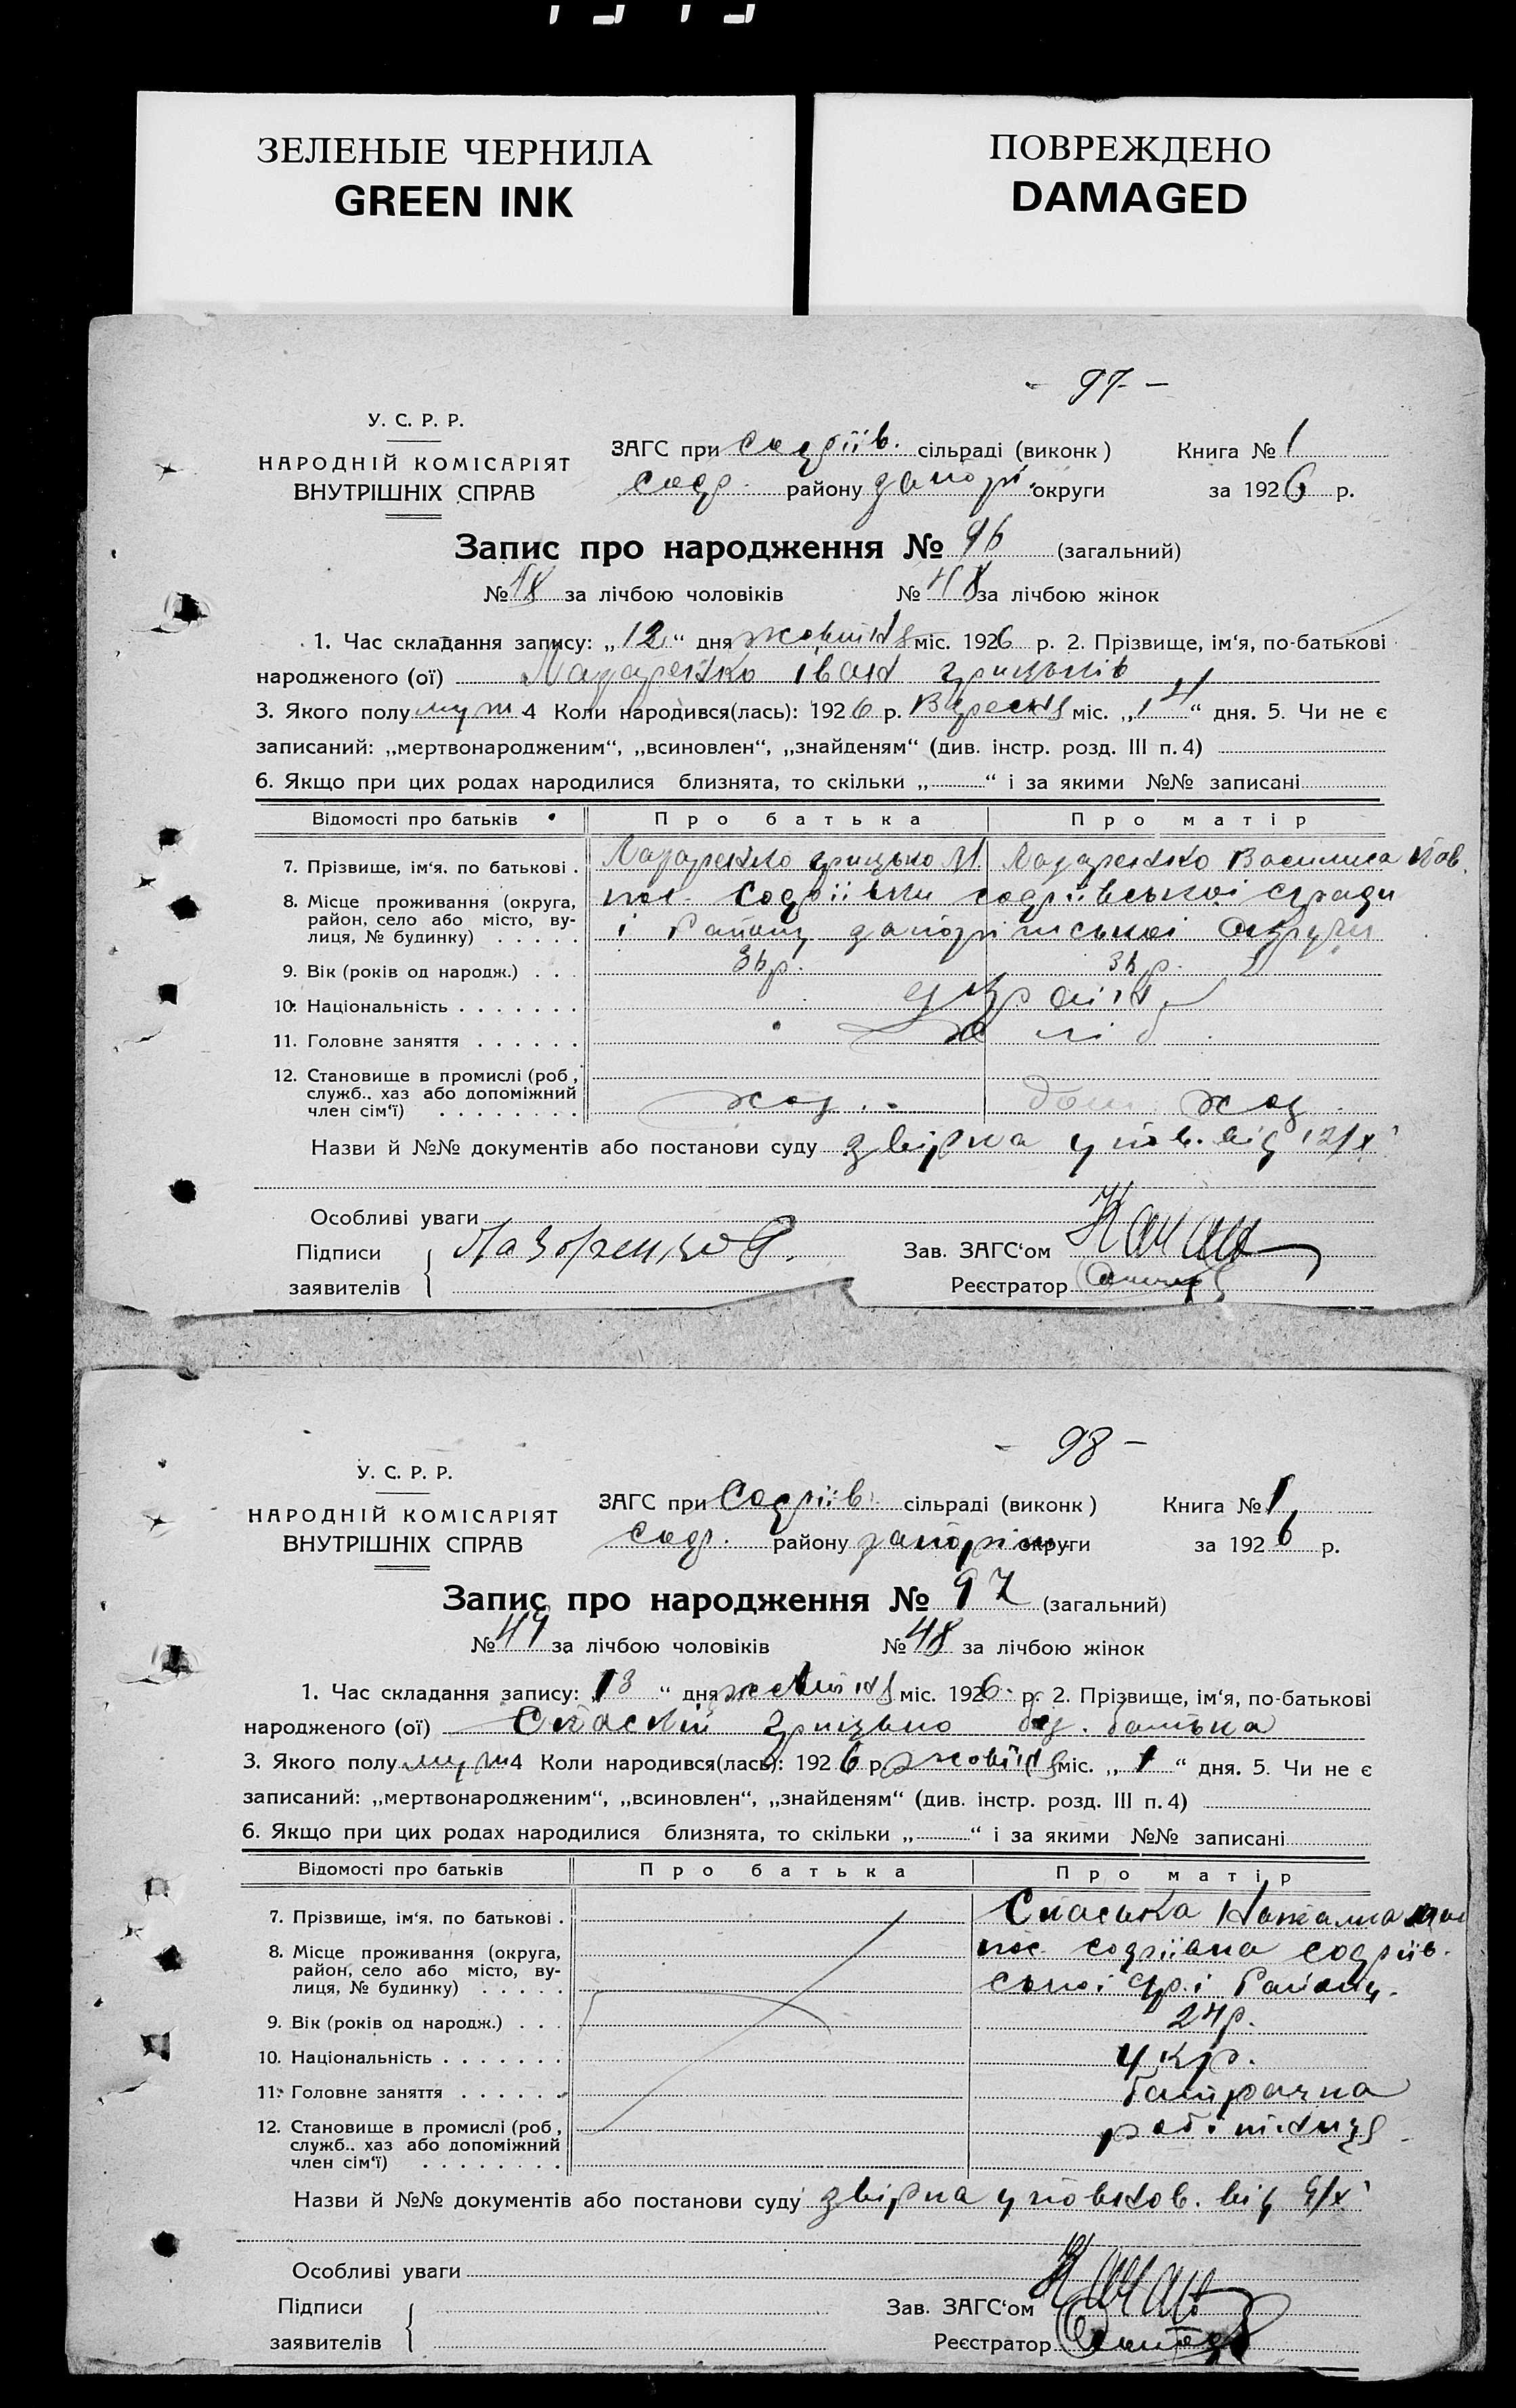 ЗЕЛЕНЫЕ ЧЕРНИЛА
GREEN INK
ПОВРЕЖДЕНО
DAMAGED
- 97 -
У. С. Р. Р.
НАРОДНІЙ КОМІСАРІЯТ
ВНУТРІШНІХ СПРАВ
ЗАГС при Софіїв. сільраді (виконк) Книга № 1
Соф. району Запоріж. округи за 1926 р.
Запис про народження № 96 (загальний)
№ 48 за лічбою чоловіків № 48 за лічбою жінок
1. Час складання запису: „12“ дня жовтня міс. 1926 р. 2. Прізвище, ім‘я, по-батькові
народженого (ої) Лазаренко Іван Грицьків
3. Якого полу муж 4 Коли народився(лась): 1926 р. Вересня міс. „14“ дня. 5. Чи не є
записаний: „мертвонародженим“, „всиновлен“, „знайденям“ (див. інстр. розд. III п. 4)
6. Якщо при цих родах народилися близнята, то скільки „ “ і за якими №№ записані
Відомості про батьків Про батька Про матір
7. Прізвище, ім‘я. по батькові . Лазаренко Грицько М. Лазаренко Василиса Пав.
8. Місце проживання (округа, район, село або місто, вулиця, № будинку) . . . . . пос. Софіївки Софіївської сради
і Району Запоріжської Округи
9. Вік (років од народж.) . . . 36р. 36р.
10. Національність . . . . . . . україн.
11. Головне заняття . . . . . . хліб
12. Становище в промислі (роб, служб.. хаз або допоміжний член сім‘ї) . . . . . . . . хаз. дом. хаз
Назви й №№ документів або постанови суду звірка у пов. від 12/х
Особливі уваги
Підписи заявителів Лазоренко Г.
Зав. ЗАГС‘ом
Реєстратор
- 98 -
У. С. Р. Р.
НАРОДНІЙ КОМІСАРІЯТ
ВНУТРІШНІХ СПРАВ
ЗАГС при Софіїв. сільраді (виконк) Книга № 1
Соф. району Запоріж. округи за 1926 р.
Запис про народження № 97 (загальний)
№ 49 за лічбою чоловіків № 48 за лічбою жінок
1. Час складання запису: „13“ дня жовтня міс. 1926 р. 2. Прізвище, ім‘я, по-батькові
народженого (ої) Спаский Грицько без. батька
3. Якого полу муж 4 Коли народився(лась): 1926 р. жовтня міс. „1“ дня. 5. Чи не є
записаний: „мертвонародженим“, „всиновлен“, „знайденям“ (див. інстр. розд. III п. 4)
6. Якщо при цих родах народилися близнята, то скільки „ “ і за якими №№ записані
Відомості про батьків Про батька Про матір
7. Прізвище, ім‘я. по батькові . Спаська Наталка
8. Місце проживання (округа, район, село або місто, вулиця, № будинку) . . . . . пос. Софіївка Софіїв-
ської ср. і Району.
9. Вік (років од народж.) . . . 24р.
10. Національність . . . . . . . укр.
11. Головне заняття . . . . . . батрачка
12. Становище в промислі (роб, служб.. хаз або допоміжний член сім‘ї) . . . . . . . . робітниця
Назви й №№ документів або постанови суду звірка у повнов. від 9/х
Особливі уваги
Підписи заявителів
Зав. ЗАГС‘ом
Реєстратор